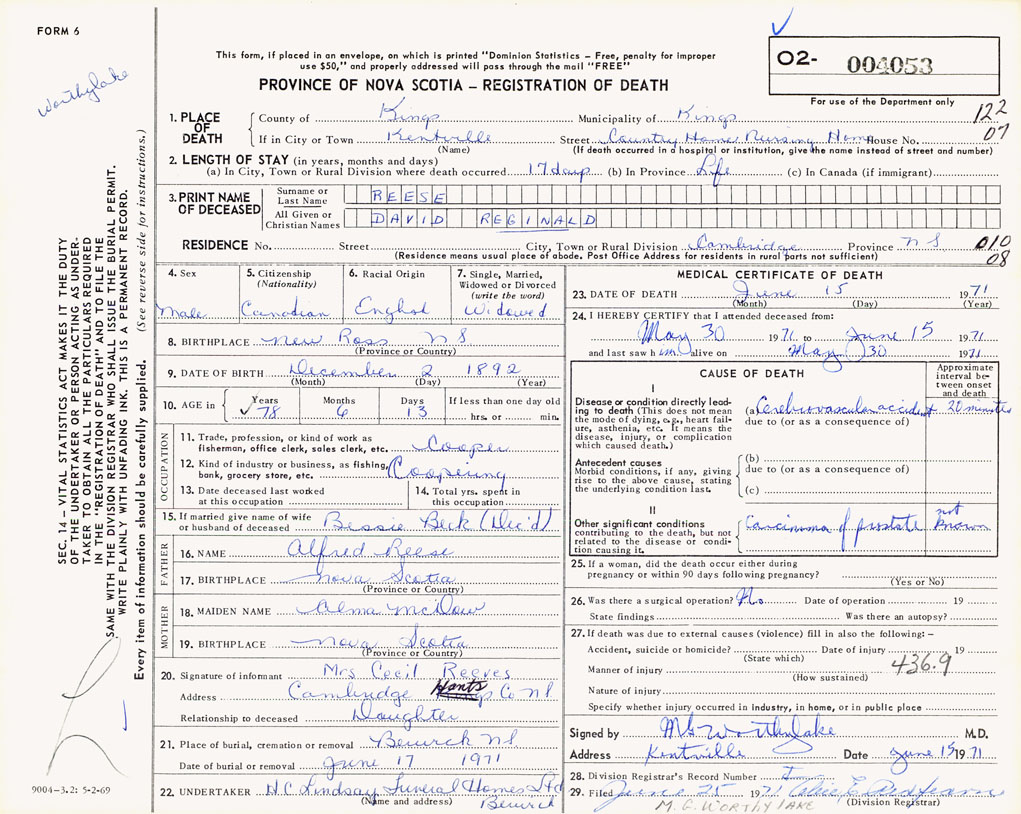 FORM 6
Worthylake
This form, if placed in an envelope, on which is printed "Dominion Statistics – Free, penalty for improper
use $50," and properly addressed will pass through the mail "FREE"
PROVINCE OF NOVA SCOTIA – REGISTRATION OF DEATH
02- 004053
For use of the Department only
1. PLACE OF DEATH County of Kings Municipality of Kings 122
If in City or Town Kentville Street Country Home Nursing Home House No. 07
(Name) (If death occurred in a hospital or institution, give the name instead of street and number)
2. LENGTH OF STAY (in years, months and days)
(a) In City, Town or Rural Division where death occurred 17 days (b) In Province Life (c) In Canada (if immigrant)
3. PRINT NAME OF DECEASED Surname or Last Name REESE
All Given or Christian Names DAVID REGINALD
RESIDENCE No. Street City, Town or Rural Division Cambridge Province NS 010
(Residence means usual place of abode. Post Office Address for residents in rural parts not sufficient) 08
4. Sex Male
5. Citizenship (Nationality) Canadian
6. Racial Origin English
7. Single, Married, Widowed or Divorced (write the word) Widowed
8. BIRTHPLACE New Ross NS
(Province or Country)
9. DATE OF BIRTH December 2 1892
(Month) (Day) (Year)
10. AGE in Years 78 Months 6 Days 13 If less than one day old
hrs. or min.
OCCUPATION
11. Trade, profession, or kind of work as fisherman, office clerk, sales clerk, etc. Cooper
12. Kind of industry or business, as fishing, bank, grocery store, etc. Coopering
13. Date deceased last worked at this occupation
14. Total yrs. spent in this occupation
15. If married give name of wife or husband of deceased Bessie Beck (Dec'd)
FATHER
16. NAME Alfred Reese
17. BIRTHPLACE Nova Scotia
(Province or Country)
MOTHER
18. MAIDEN NAME Alma McDow
19. BIRTHPLACE Nova Scotia
(Province or Country)
20. Signature of informant Mrs Cecil Reeves
Address Cambridge Hants Co NS
Relationship to deceased Daughter
21. Place of burial, cremation or removal Berwick NS
Date of burial or removal June 17 1971
22. UNDERTAKER H C Lindsay Funeral Homes Ltd
(Name and address) Berwick
MEDICAL CERTIFICATE OF DEATH
23. DATE OF DEATH June 15 1971
(Month) (Day) (Year)
24. I HEREBY CERTIFY that I attended deceased from:
May 30 1971 to June 15 1971
and last saw him alive on May 30 1971
CAUSE OF DEATH
Approximate interval between onset and death
I
Disease or condition directly leading to death (This does not mean the mode of dying, e.g., heart failure, asthenia, etc. It means the disease, injury, or complication which caused death.)
(a) Cerebrovascular accident 20 minutes
due to (or as a consequence of)
Antecedent causes
Morbid conditions, if any, giving rise to the above cause, stating the underlying condition last.
(b)
due to (or as a consequence of)
(c)
II
Other significant conditions contributing to the death, but not related to the disease or condition causing it.
Carcinoma of prostate not known
25. If a woman, did the death occur either during
pregnancy or within 90 days following pregnancy?
(Yes or No)
26. Was there a surgical operation? No. Date of operation 19
State findings Was there an autopsy?
27. If death was due to external causes (violence) fill in also the following: –
Accident, suicide or homicide? Date of injury 19
(State which)
Manner of injury 436.9
(How sustained)
Nature of injury
Specify whether injury occurred in industry, in home, or in public place
Signed by MG Worthylake M.D.
Address Kentville Date June 15 1971
28. Division Registrar's Record Number
29. Filed June 25 1971
(Division Registrar)
M. G. WORTHYLAKE
SEC. 14 – VITAL STATISTICS ACT MAKES IT THE DUTY
OF THE UNDERTAKER OR PERSON ACTING AS UNDER-
TAKER TO OBTAIN ALL THE PARTICULARS REQUIRED
IN THE "REGISTRATION OF DEATH" AND TO FILE THE
SAME WITH THE DIVISION REGISTRAR WHO SHALL ISSUE THE BURIAL PERMIT.
WRITE PLAINLY WITH UNFADING INK. THIS IS A PERMANENT RECORD.
Every item of information should be carefully supplied. (See reverse side for instructions.)
9004-3.2: 5-2-69